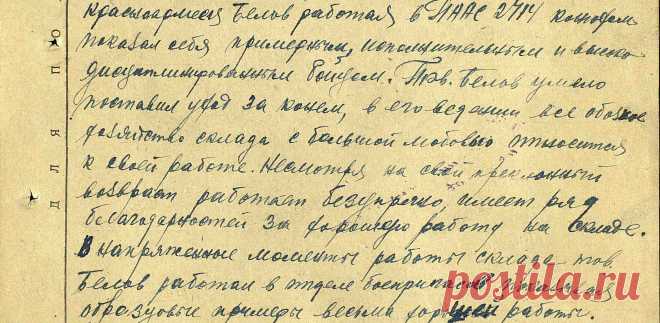 красноармеец Белов работая в ПААС 2714 коноводом
показал себя примерным, исполнительным и высоко
дисциплинированным бойцом. Тов. Белов умело
поставил уход за конем, в его ведении все обозное
хозяйство склада с большой любовью относится
к своей работе. Несмотря на свой преклонный
возраст работает безупречно, имеет ряд
благодарностей за хорошую работу на складе.
В напряженные моменты работы склада тов.
Белов работал в отделе боеприпасов
образцовые примеры весьма хорошей работы.
ДЛЯ ПО
postila.ru